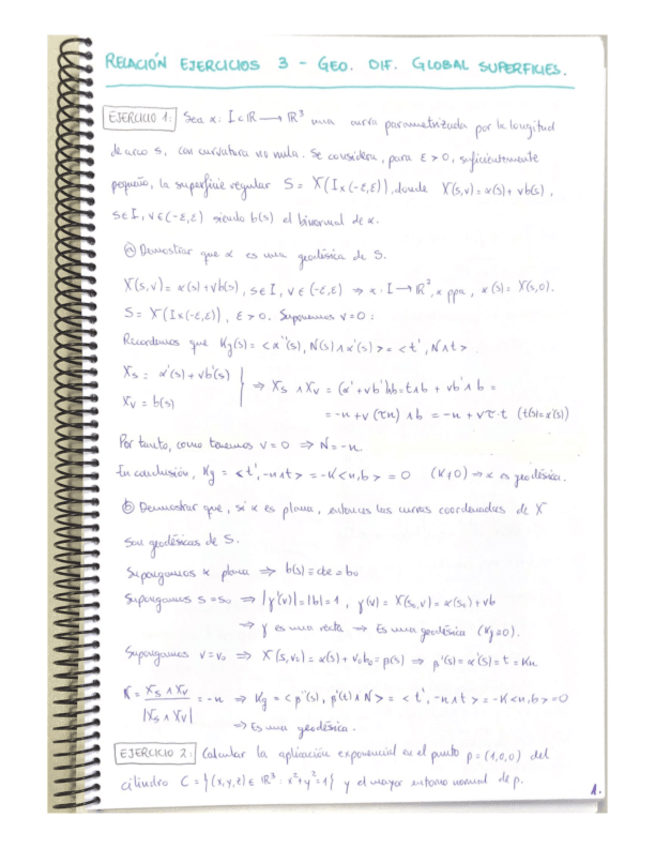 RELACIÓN EJERCICIOS 3 - GEO. DIF. GLOBAL SUPERFICIES.
EJERCICIO 1: Sea α: I⊂ℝ → ℝ³ una curva parametrizada por la longitud
de arco s, con curvatura no nula. Se considera, para ε > 0, suficientemente
pequeño, la superficie regular S = X(I×(-ε,ε)), donde X(s,v) = α(s) + vb(s),
s∈I, v∈(-ε,ε) siendo b(s) el binormal de α.
a) Demostrar que α es una geodésica de S.
X(s,v) = α(s) + vb(s), s∈I, v∈(-ε,ε) ⇒ α: I → ℝ³, α ppa, α(s) = X(s,0).
S = X(I×(-ε,ε)), ε > 0. Suponemos v=0:
Recordemos que Kg(s) = <α''(s), N(s)∧α'(s)> = <t', N∧t>.
Xs = α'(s) + vb'(s)
Xv = b(s)
⇒ Xs ∧ Xv = (α' + vb')∧b = t∧b + vb'∧b =
= -n + v(τn)∧b = -n + vτ·t (t(s)=α'(s))
Por tanto, como tenemos v=0 ⇒ N = -n.
En conclusión, Kg = <t', -n∧t> = -K<n,b> = 0 (K≠0) ⇒ α es geodésica.
b) Demostrar que, si α es plana, entonces las curvas coordenadas de X
son geodésicas de S.
Supongamos α plana ⇒ b(s) = cte = b₀
Supongamos s=s₀ ⇒ |γ'(v)| = |b| = 1, γ(v) = X(s₀,v) = α(s₀) + vb
⇒ γ es una recta → Es una geodésica (Kg=0).
Supongamos v=v₀ ⇒ X(s,v₀) = α(s) + v₀b₀ = β(s) ⇒ β'(s) = α'(s) = t = Kn
N = Xs ∧ Xv / |Xs ∧ Xv| = -n ⇒ Kg = <β''(s), β'(t)∧N> = <t', -n∧t> = -K<n,b> = 0
⇒ Es una geodésica.
EJERCICIO 2: Calcular la aplicación exponencial en el punto p = (1,0,0) del
cilindro C = {(x,y,z)∈ℝ³: x²+y²=1} y el mayor entorno normal de p.
1.